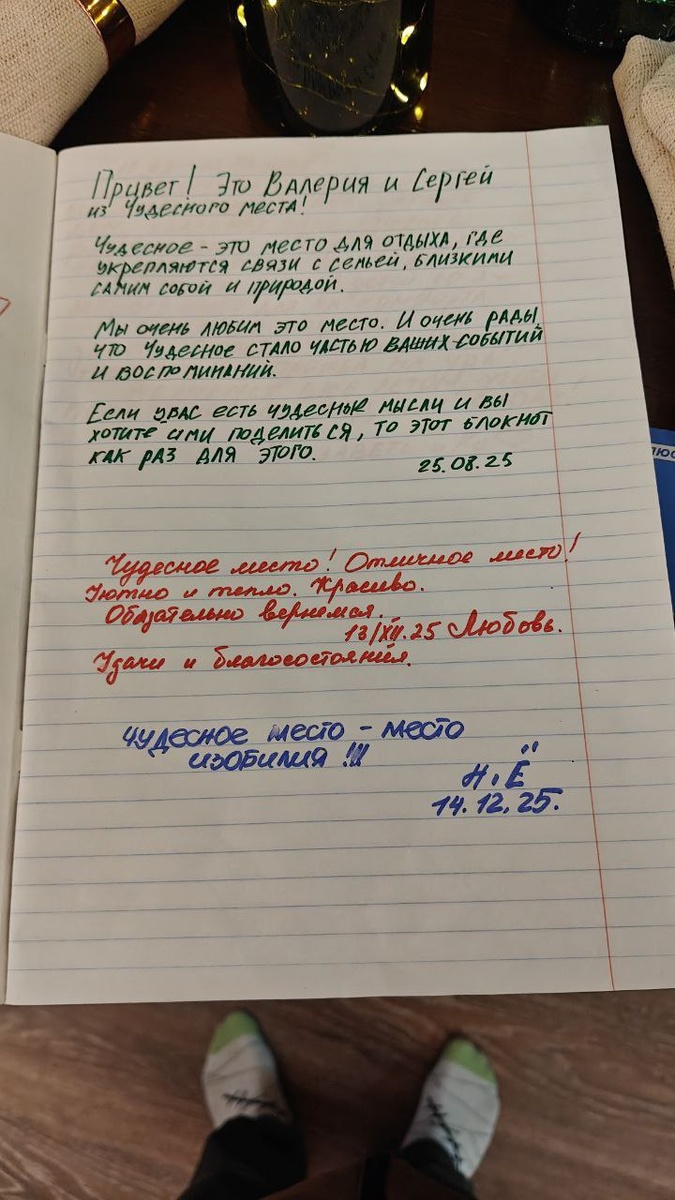 Привет! Это Валерия и Сергей
из Чудесного места!
Чудесное - это место для отдыха, где
укрепляются связи с семьей, близкими
самим собой и природой.
Мы очень любим это место. И очень рады,
что Чудесное стало частью ваших событий
и воспоминаний.
Если у вас есть чудесные мысли и вы
хотите ими поделиться, то этот блокнот
как раз для этого.
25.08.25
Чудесное место! Отличное место!
Уютно и тепло. Красиво.
Обязательно вернемся.
13/XII.25 Любовь.
Удачи и благосостояния.
Чудесное место - место
изобилия!!!
Н.Ё
14.12.25.